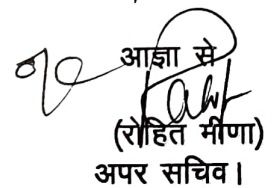 आज्ञा से
(रोहित मीणा)
अपर सचिव।